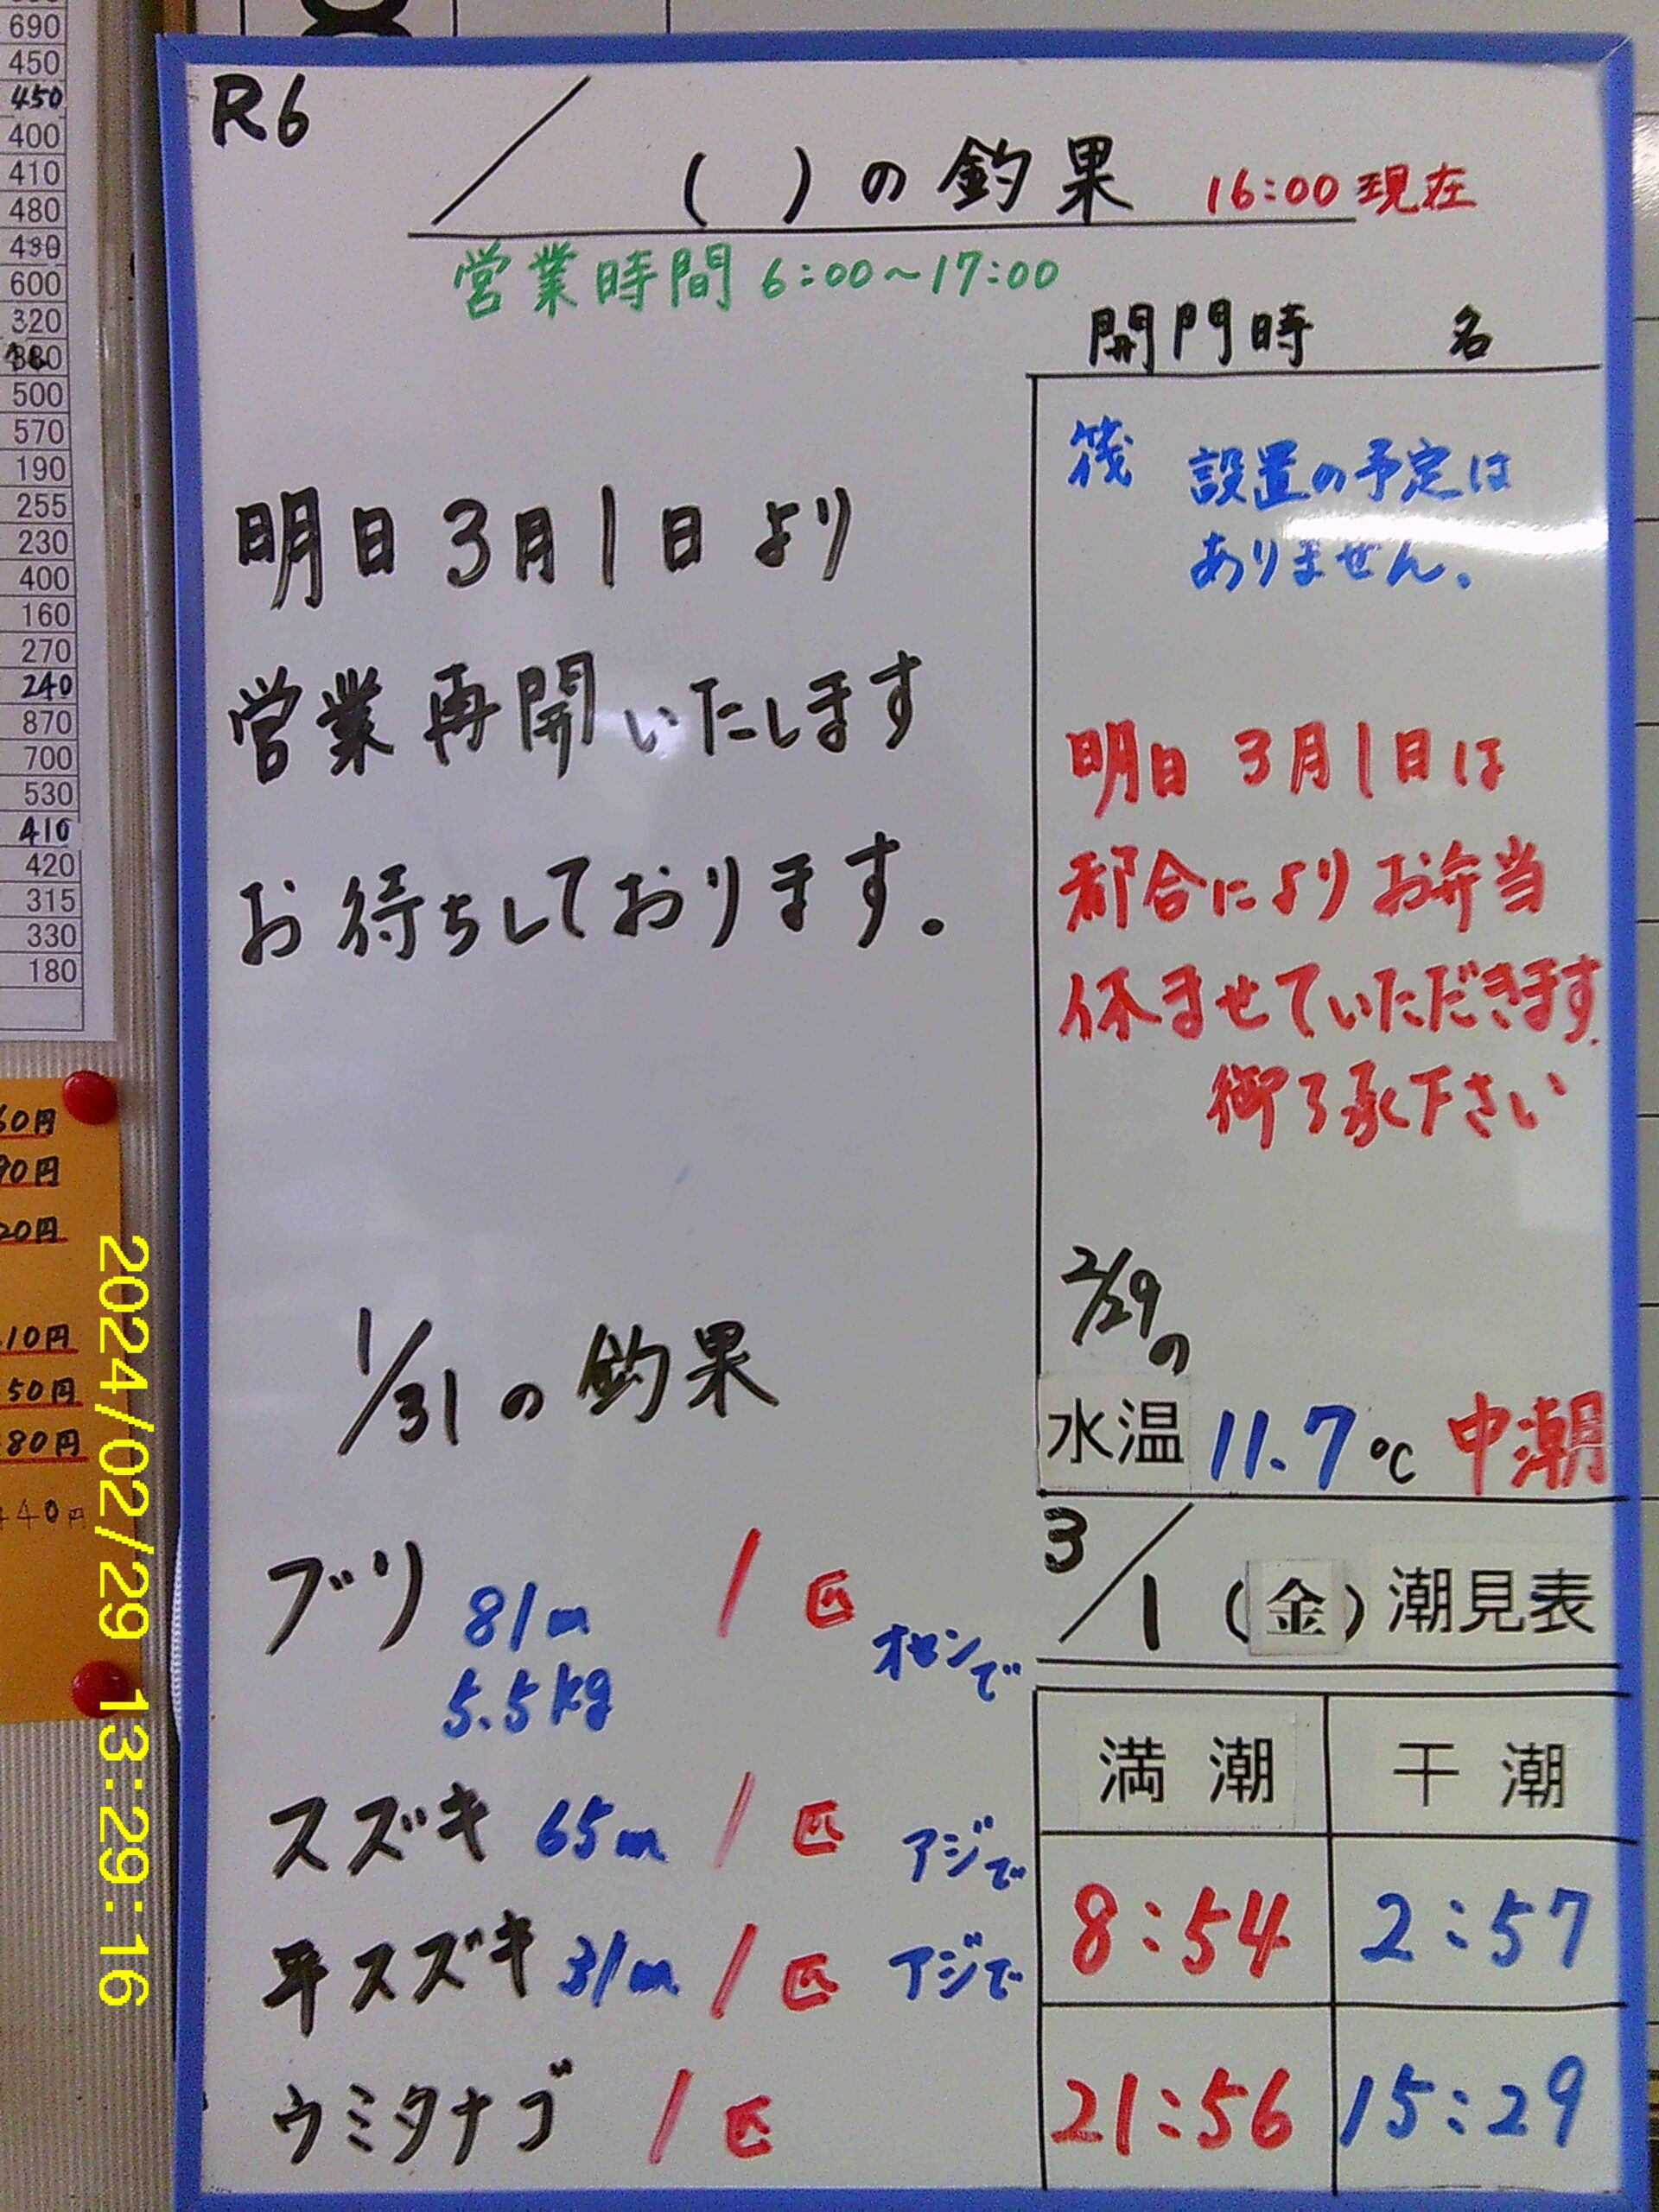 690
450
450
400
410
480
430
600
320
500
570
190
255
230
400
160
270
240
870
700
530
410
420
315
330
180
60円
90円
20円
10円
50円
80円
440円
R6
/ ( )の釣果 16:00現在
営業時間 6:00~17:00
明日3月1日より
営業再開いたします
お待ちしております。
1/31の釣果
ブリ 81cm 1匹 オセンで
5.5kg
スズキ 65cm 1匹 アジで
平スズキ 31cm 1匹 アジで
ウミタナゴ 1匹
開門時 名
筏 設置の予定は
ありません。
明日 3月1日は
都合によりお弁当
休ませていただきます.
御了承下さい
2/29の
水温 11.7℃ 中潮
3/1(金)潮見表
満潮 干潮
8:54 2:57
21:56 15:29
2024/02/29 13:29:16